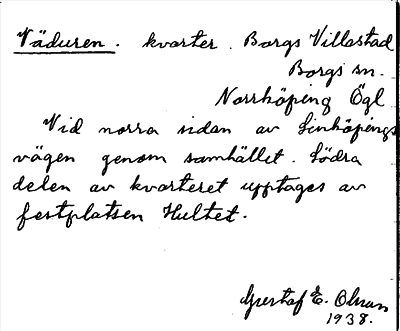 Väduren. kvarter. Borgs Villastad
Borgs sn.
Norrköping Ögl.
Vid norra sidan av Linköpings
vägen genom samhället. Södra
delen av kvarteret upptages av
festplatsen Hultet.
Gustaf E.
1938.